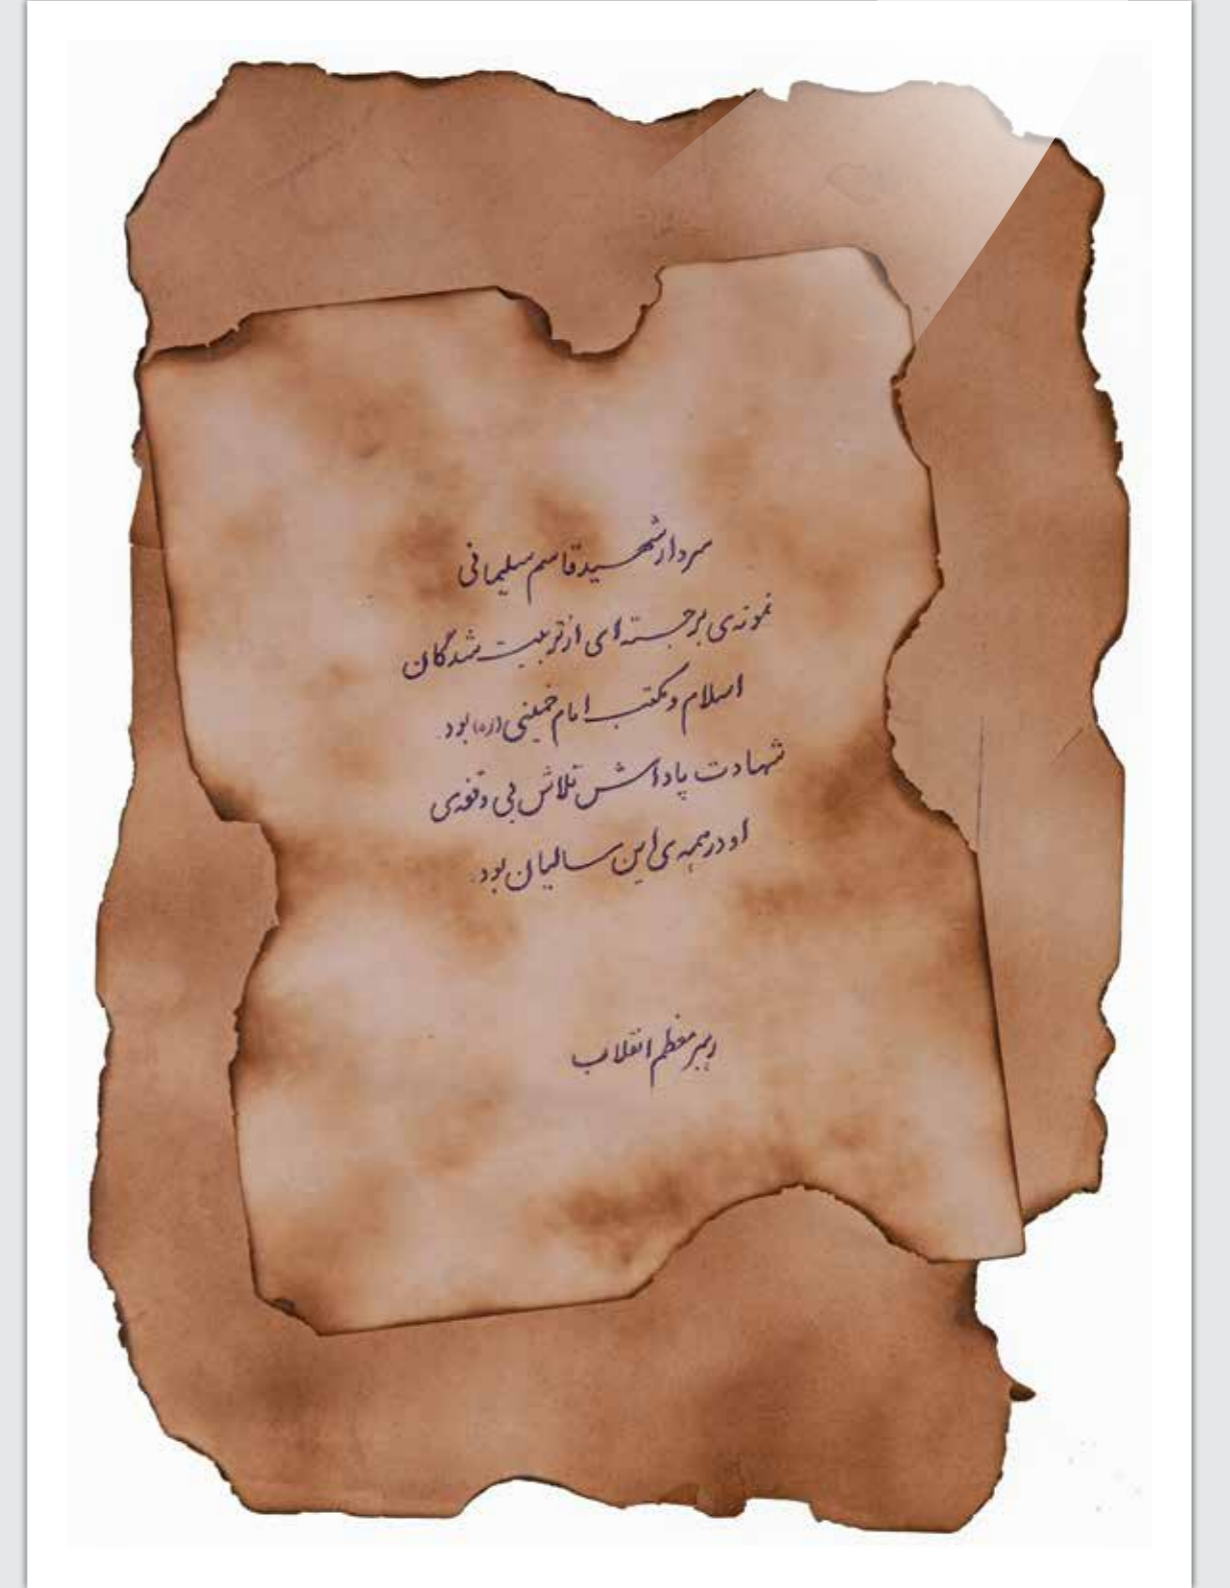 سردار شهید قاسم سلیمانی
نمونه‌ی برجسته‌ای از تربیت شدگان
اسلام و مکتب امام خمینی (ره) بود.
شهادت پاداش تلاش بی وقفه‌ی
او در همه‌ی این سالیان بود.
رهبر معظم انقلاب